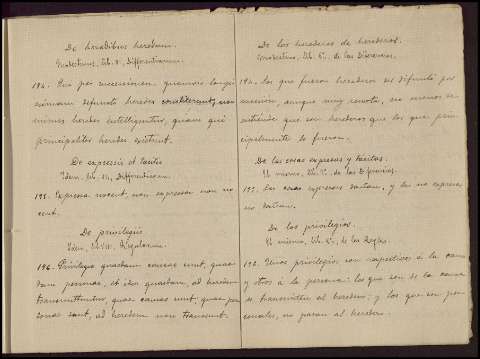 De heredibus heredum.
Modestinus, lib. V, Differentiarum.
194. Qui per successionem, quamvis longi
ssimam defuncto heredes constiterunt, non
minus heredes intelliguntur, quam qui
principaliter heredes existunt.
De expressis et tacitis
Idem, lib. Differentiarum.
195. Expressa nocent, non expressa non no
cent.
De privilegiis
Idem, lib. Regularum.
196. Privilegia quaedam causae sunt, quae
dam personae, et ideo quaedam, ad heredem
transmittuntur, quae causae sunt, quae per
sonae sunt, ad heredem non transeunt.
De los herederos de herederos.
Modestino, lib. de las Diferencias.
194. Los que fueron herederos del difunto por
sucesion, aunque muy remota, no menos se
entiende que son herederos que los que prin
cipalmente lo fueron.
De las cosas expresas y tácitas.
El mismo, lib. de las Diferencias.
195. Las cosas expresas dañan, y las no expresas
no dañan.
De los privilegios.
El mismo, lib. de las Reglas.
196. Unos privilegios son respectivos á la causa
y otros á la persona: los que son de la causa
se transmiten al heredero; y los que son per
sonales, no pasan al heredero.